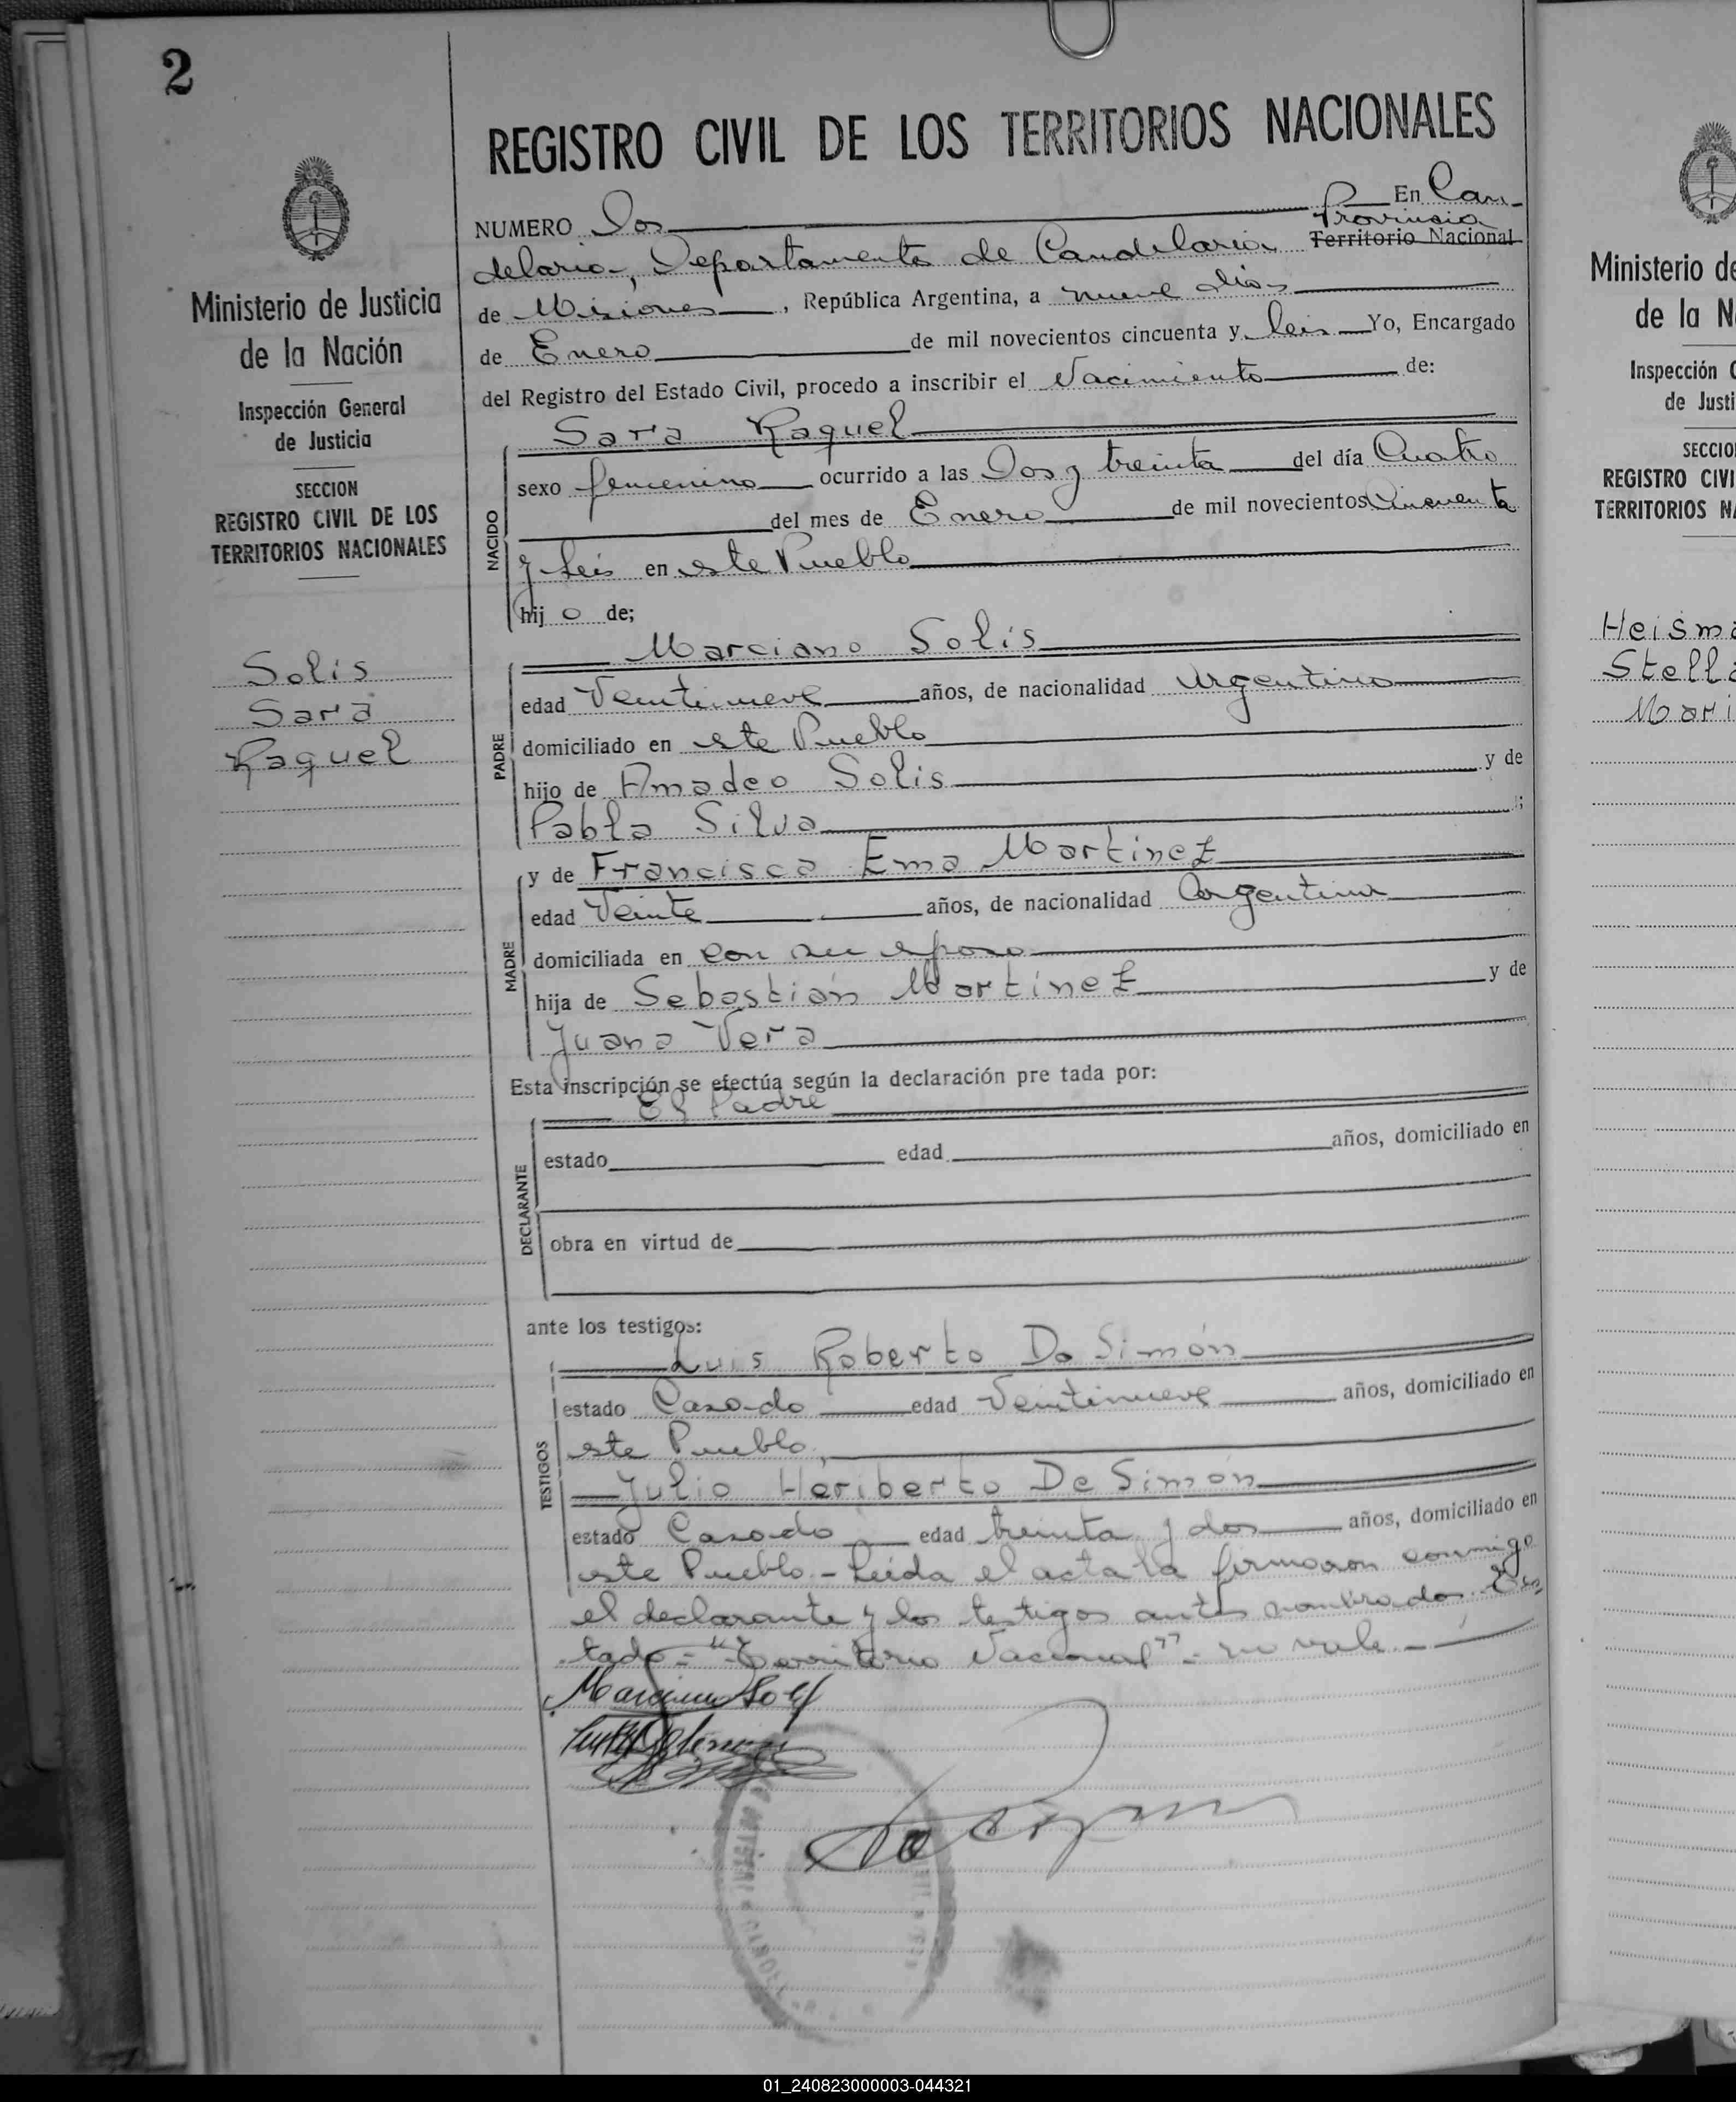 2
REGISTRO CIVIL DE LOS TERRITORIOS NACIONALES
Ministerio de Justicia
de la Nación
Inspección General
de Justicia
SECCION
REGISTRO CIVIL DE LOS
TERRITORIOS NACIONALES
Solis
Sara
Raquel
NUMERO Dos En Can-
Provincia
delaria, Departamento de Candelaria Territorio Nacional
de Misiones, República Argentina, a nueve días
de Enero de mil novecientos cincuenta y seis Yo, Encargado
del Registro del Estado Civil, procedo a inscribir el Nacimiento de:
NACIDO
Sara Raquel
sexo femenino ocurrido a las Dos y treinta del día Cuatro
del mes de Enero de mil novecientos Cincuenta
y seis en este Pueblo
hij o de;
PADRE
Marciano Solis
edad Veintinueve años, de nacionalidad Argentino
domiciliado en este Pueblo
hijo de Amadeo Solis y de
Pabla Silva ;
MADRE
y de Francisca Ema Martinez
edad Veinte años, de nacionalidad Argentina
domiciliada en con su esposo
hija de Sebastián Martínez y de
Juana Vera
Esta inscripción se efectúa según la declaración pre tada por:
DECLARANTE
El Padre
estado edad años, domiciliado en
obra en virtud de
ante los testigos:
TESTIGOS
Luis Roberto De Simón
estado Casado edad Veintinueve años, domiciliado en
este Pueblo,
Julio Heriberto De Simón
estado Casado edad treinta y dos años, domiciliado en
este Pueblo.- Leida el acta la firmaron conmigo
el declarante y los testigos antes nombrados. Tes-
tado= "Territorio Nacional"- no vale.-
Marciano Solis
Ministerio de
de la N
Inspección G
de Justi
SECCIO
REGISTRO CIVI
TERRITORIOS NA
Heisma
Stella
Mari
01_240823000003-044321